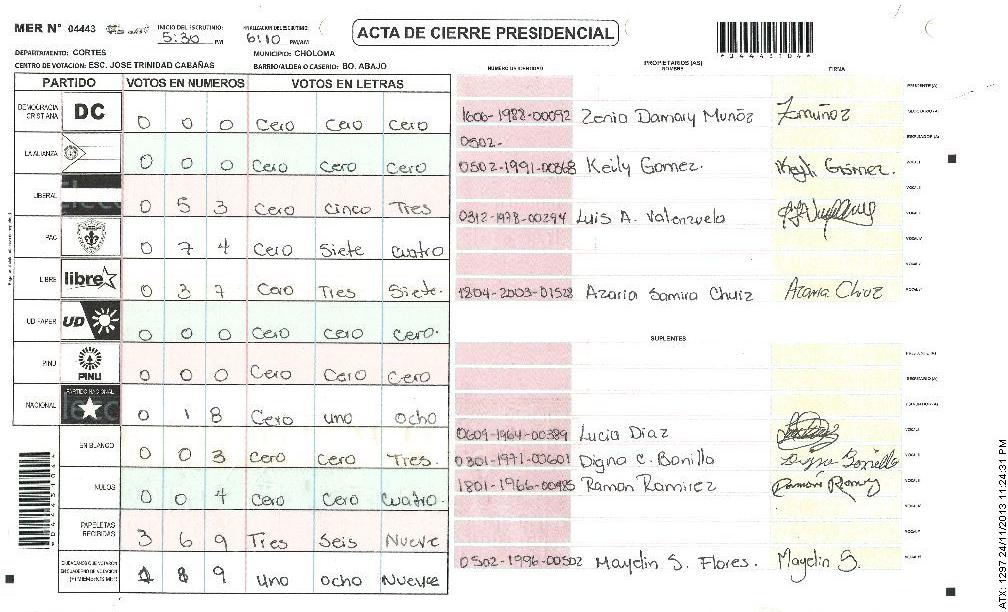 MER N° 04443 INICIO DEL ESCRUTINIO: 5:30 PM FINALIZACION DEL ESCRUTINIO: 6:10 PM/AM
ACTA DE CIERRE PRESIDENCIAL
DEPARTAMENTO: CORTES MUNICIPIO: CHOLOMA
CENTRO DE VOTACION: ESC. JOSE TRINIDAD CABAÑAS BARRIO/ALDEA O CASERIO: BO. ABAJO
PARTIDO VOTOS EN NUMEROS VOTOS EN LETRAS
DEMOCRACIA CRISTIANA DC 0 0 0 Cero Cero Cero
LA ALIANZA 0 0 0 Cero Cero Cero
LIBERAL 0 5 3 Cero Cinco Tres
PAC 0 7 4 Cero Siete Cuatro
LIBRE libre 0 3 7 Cero Tres Siete.
UD FAPER UD 0 0 0 Cero Cero Cero.
PINU PINU 0 0 0 Cero Cero Cero
NACIONAL PARTIDO NACIONAL 0 1 8 Cero uno ocho
EN BLANCO 0 0 3 Cero Cero Tres.
NULOS 0 0 4 Cero Cero Cuatro.
PAPELETAS RECIBIDAS 3 6 9 Tres Seis Nueve
CIUDADANOS QUE VOTARON EN CUADERNO DE VOTACION 1 8 9 Uno ocho Nueve
NUMERO DE IDENTIDAD PROPIETARIOS (AS) NOMBRE FIRMA
PRESIDENTE (A)
1606-1988-00092 Zenia Damary Muñoz Zmuñoz SECRETARIO (A)
0502- ESCRUTADOR (A)
0502-1991-00368 Keily Gomez. Keyli Gómez. VOCAL I
VOCAL II
0312-1978-00294 Luis A. Valenzuela VOCAL III
VOCAL IV
VOCAL V
1804-2003-01528 Azaria Samira Chuiz
SUPLENTES
SECRETARIO (A)
0609-1964-00389 Lucia Diaz
0301-1971-00601 Digna C. Bonilla Digna Bonilla
1801-1966-00485 Ramon Ramirez
0502-1996-00502 Mayelin S. Flores. Mayelin S.
ATX: 1297 24/11/2013 11:24:31 PM